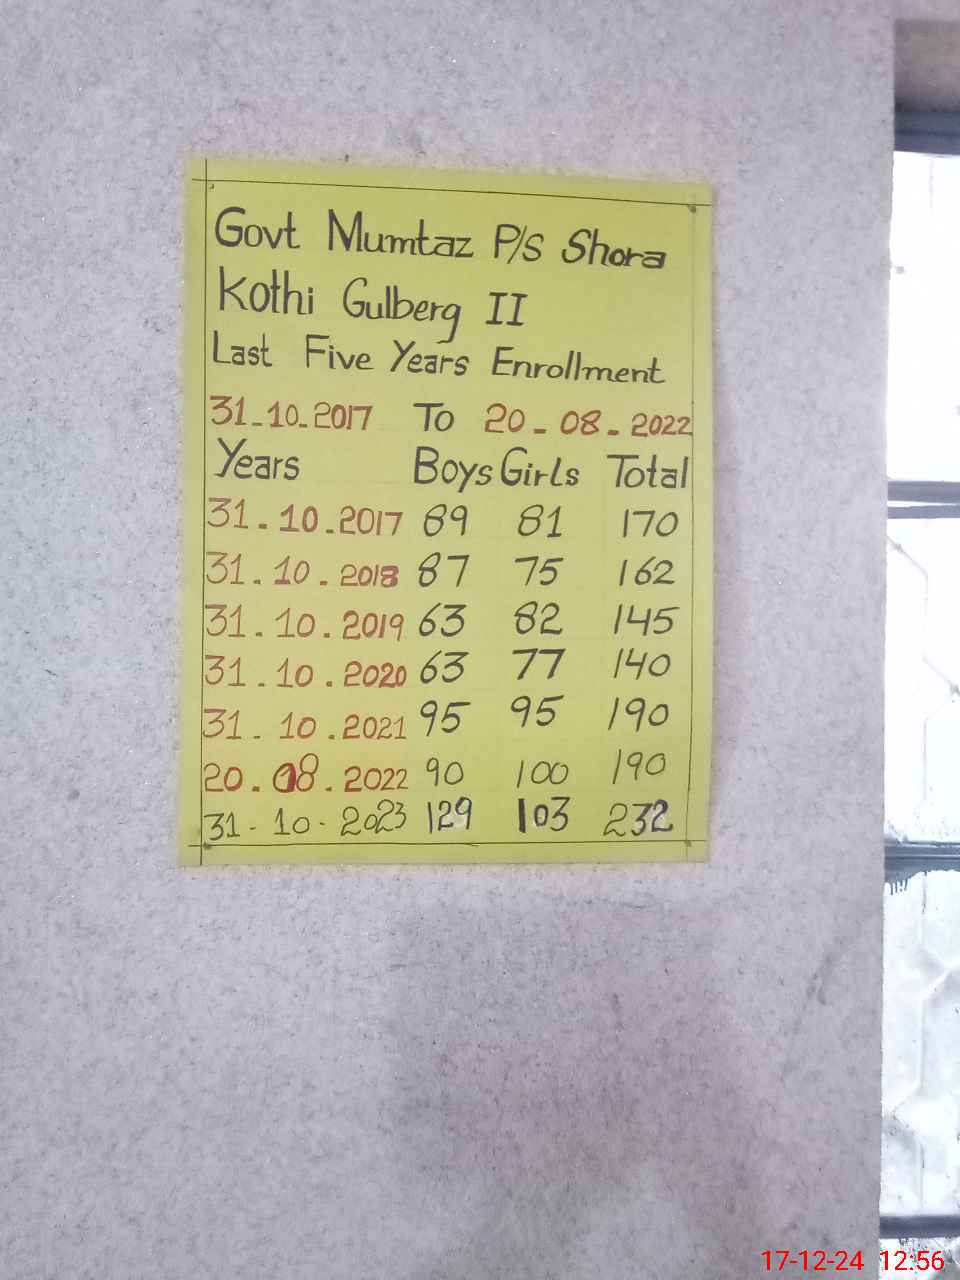 Govt Mumtaz P/S Shora
Kothi Gulberg II
Last Five Years Enrollment
31-10-2017 To 20-08-2022
Years Boys Girls Total
31.10.2017 89 81 170
31.10.2018 87 75 162
31.10.2019 63 82 145
31.10.2020 63 77 140
31.10.2021 95 95 190
20.08.2022 90 100 190
31-10-2023 129 103 232
17-12-24 12:56